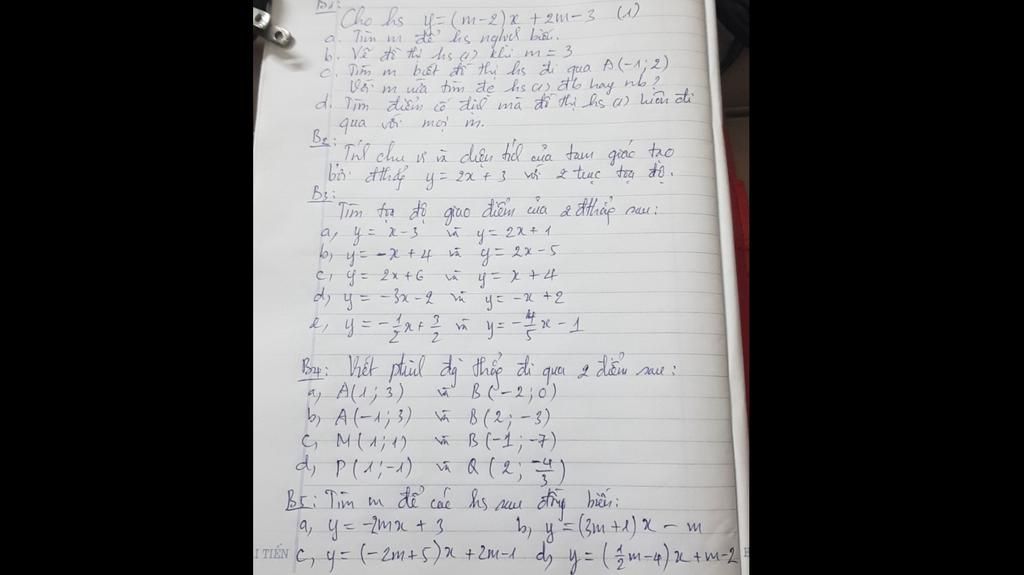 B1:
Cho hs y = (m-2)x + 2m-3 (1)
a. Tìm m để hs nghịch biến.
b. Vẽ đồ thị hs (1) khi m = 3
c. Tìm m biết đồ thị hs đi qua A(-1; 2)
Với m vừa tìm đc hs (1) đb hay nb?
d. Tìm điểm cố định mà đồ thị hs (1) luôn đi
qua với mọi m.
B2:
Tính chu vi và diện tích của tam giác tạo
bởi đthẳng y = 2x + 3 với 2 trục tọa độ.
B3:
Tìm tọa độ giao điểm của 2 đthẳng sau:
a, y = x-3 và y = 2x+1
b, y = -x + 4 và y = 2x-5
c, y = 2x+6 và y = x + 4
d, y = -3x-2 và y = -x + 2
e, y = -1/2x + 3/2 và y = -4/5x - 1
B4: Viết ptrình đg thẳng đi qua 2 điểm sau:
a, A(1; 3) và B(-2; 0)
b, A(-1; 3) và B(2; -3)
c, M(1; 1) và B(-1; -7)
d, P(1; -1) và Q(2; -4/3)
B5: Tìm m để các hs sau đồng biến:
a, y = -2mx + 3 b, y = (3m+1)x - m
c, y = (-2m+5)x + 2m-1 d, y = (1/2m-4)x + m-2
I TIẾN